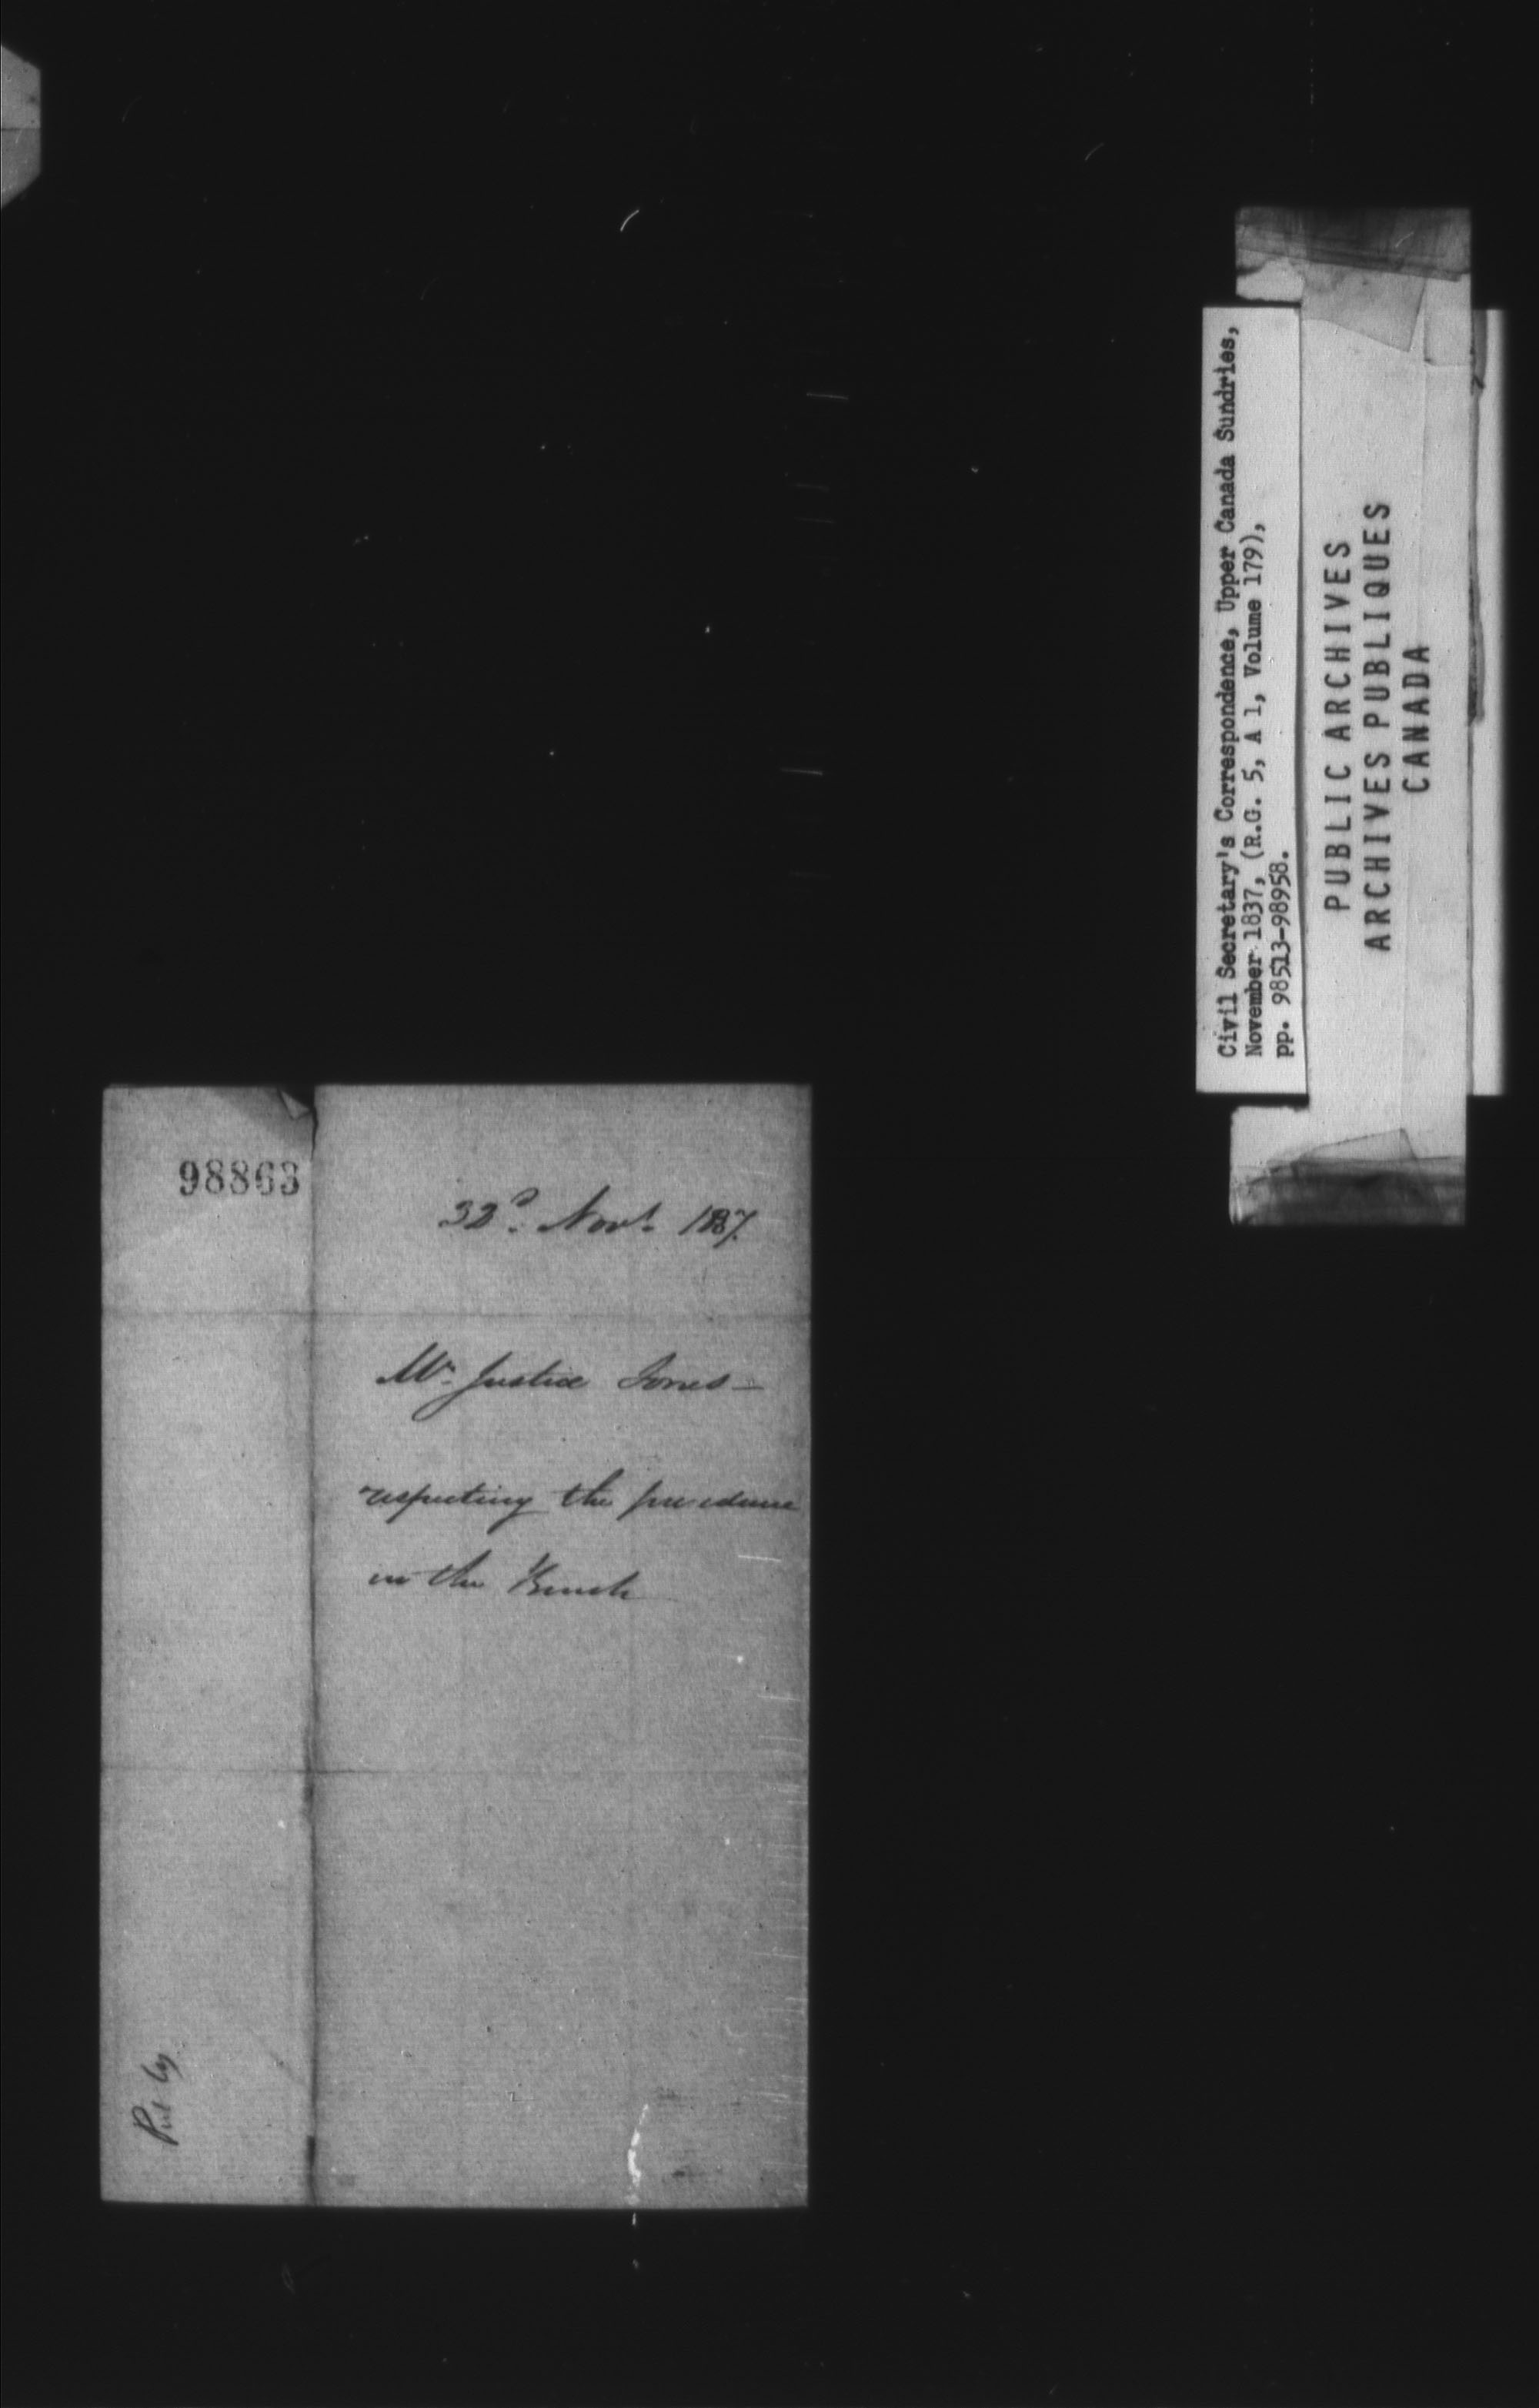 98863
22d. Novr. 1837.
Mr. Justice Jones—
respecting the precedence
in the Bench
Put by
Civil Secretary's Correspondence, Upper Canada Sundries,
November 1837, (R.G. 5, A 1, Volume 179),
pp. 98513-98958.
PUBLIC ARCHIVES
ARCHIVES PUBLIQUES
CANADA